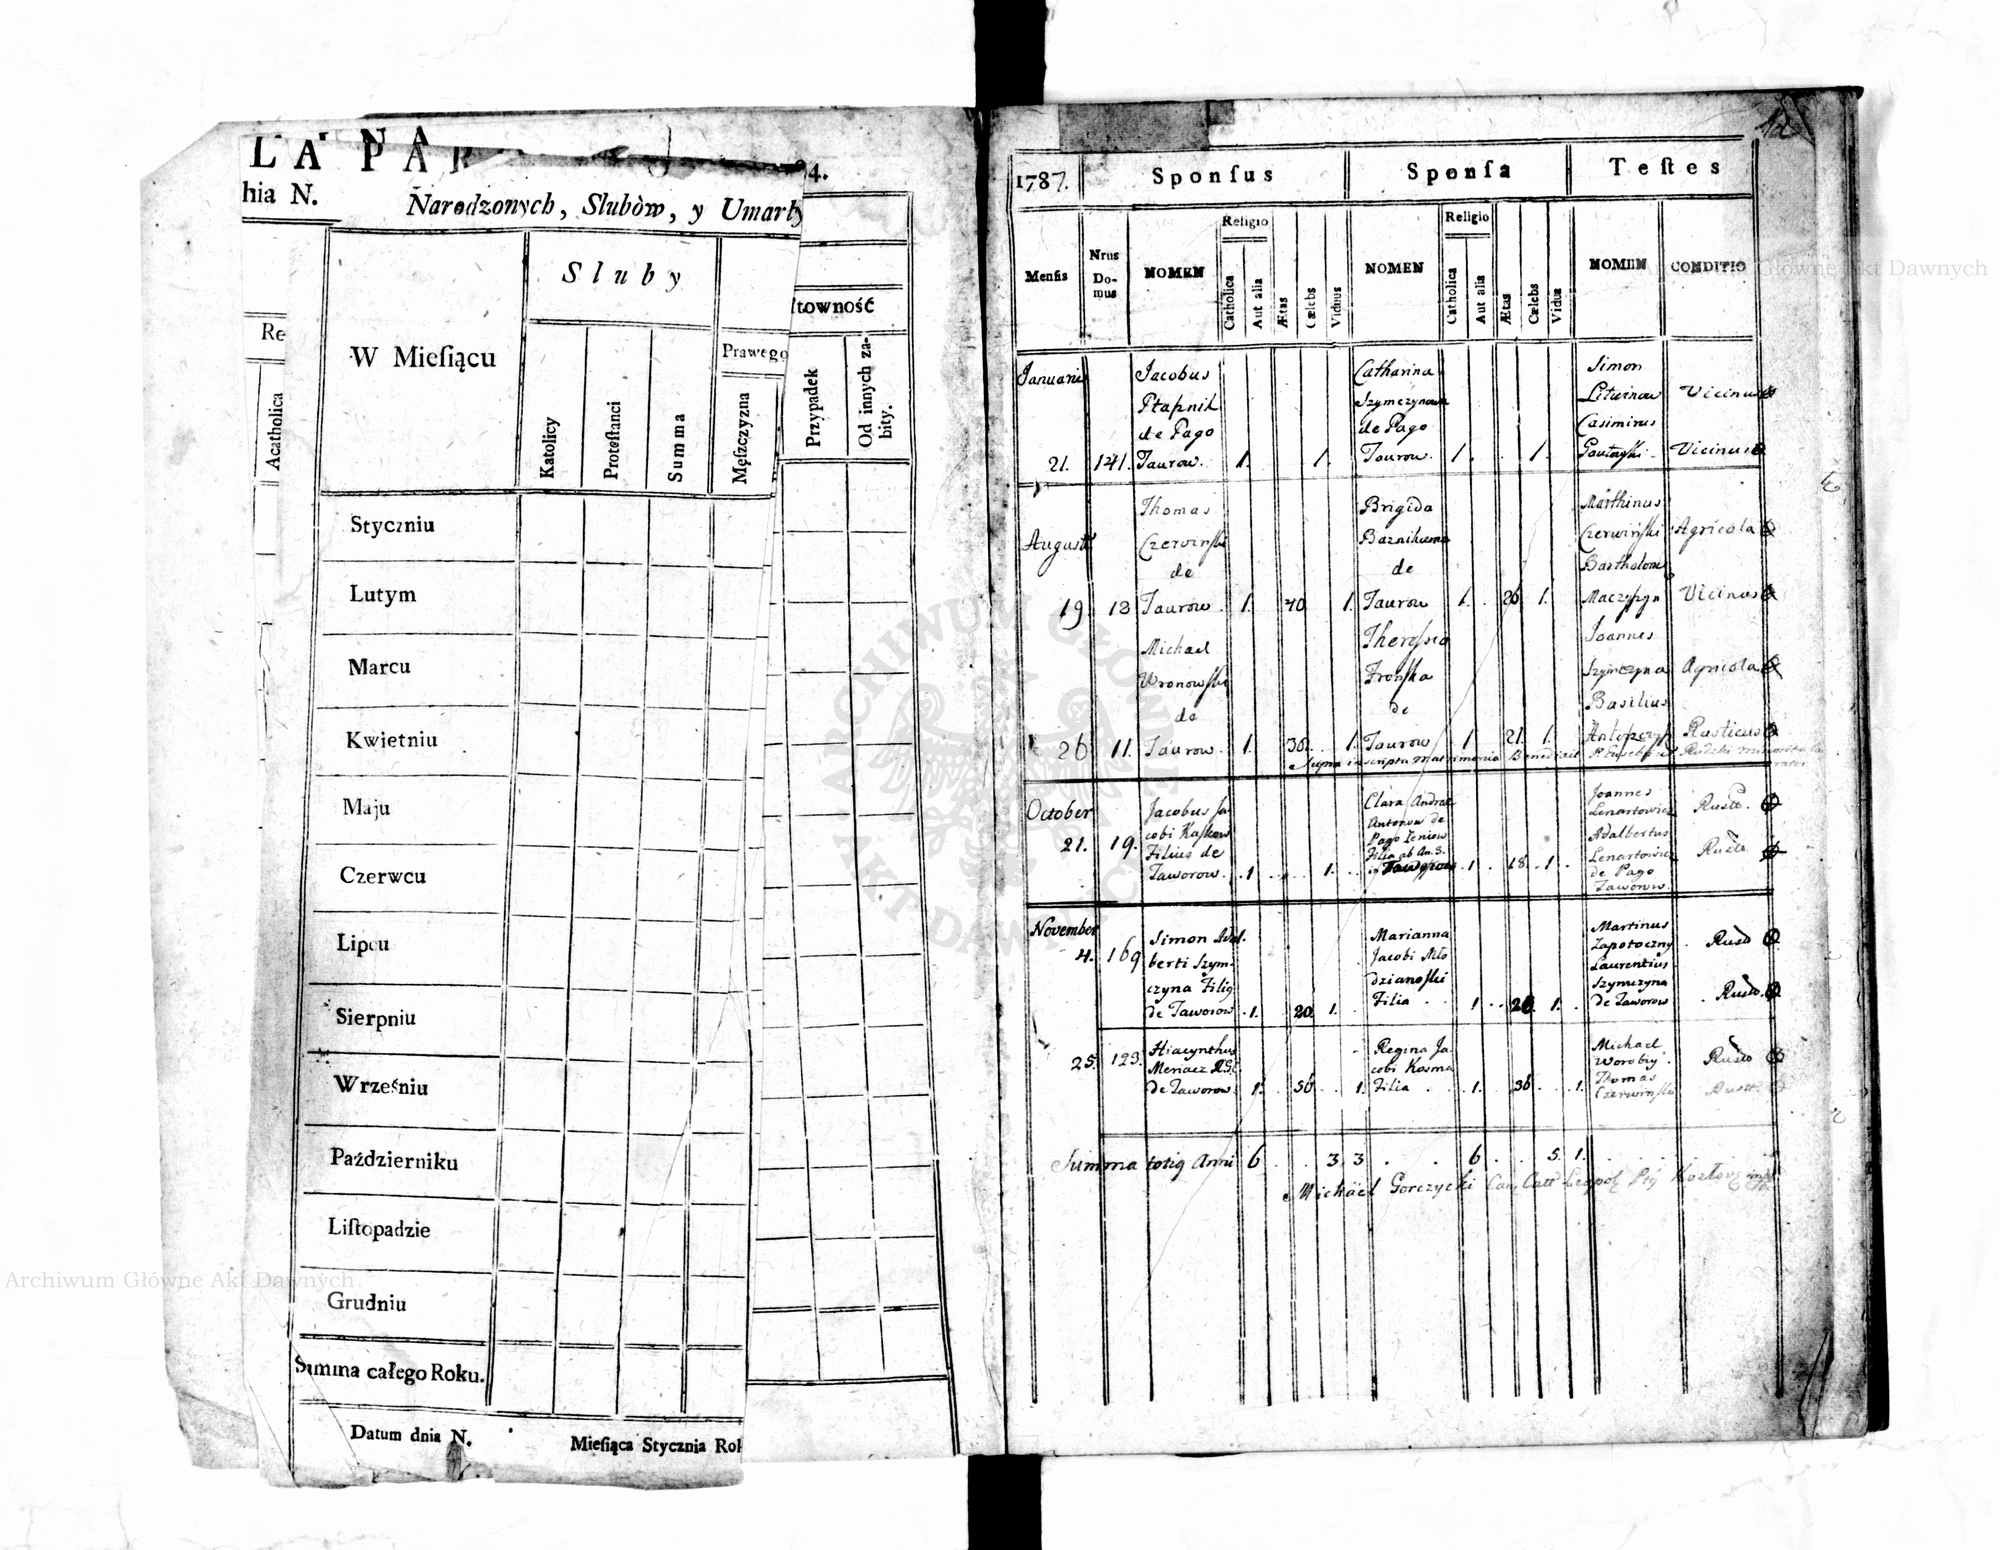 LA PAR
84.
hia N.
Narodzonych, Slubòw, y Umarły
Re
Acatholica
W Mieſiącu
Sluby
Katolicy
Proteſtanci
Summa
Prawego
Męſzczyzna
ltowność
Przypadek
Od innych za-
bity.
Styczniu
Lutym
Marcu
Kwietniu
Maju
Czerwcu
Lipcu
Sierpniu
Wrześniu
Październiku
Liſtopadzie
Grudniu
Summa całego Roku.
Datum dnia N. Mieſiąca Stycznia Rok
1787. Sponſus Sponſa Teſtes
Menſis
Nrus
Do-
mus
NOMEN
Religio
Catholica
Aut alia
Ætas
Cælebs
Viduus
NOMEN
Religio
Catholica
Aut alia
Ætas
Cælebs
Vidua
NOMEN
CONDITIO
Januarii Jacobus Catharina Simon
Ptapnik Szymczynowa Litwinow Vicinus
de Pago de Pago Casimirus
21. 141. Taurow. 1. 1. Taurow. 1. 1. Vicinus
Thomas Brigida Marthinus
Augusti Czerwinſki Czerwinſki Agricola
de de
19. 13 Taurow. 1. 40 1. Taurow 1. 26 1. Vicinus
Michael Joannes
Wronowſki Szymczyna Agricola
de de Basilius
26 11. Taurow. 1. 30. 1. Taurow 1. 21. 1. Rusticus
Supra inscripta Matrimonia Benedixit
October Jacobus Ja- Clara Andreæ Joannes
cobi Kaſkow Antonow de Lenartowicz
21. 19. Filius de Pago Adalbertus
Taworow. 1 1. 1 18. 1. Lenartowicz
de Pago
Taworow
November Simon Adal. Marianna Martinus
4. 169 berti Szym- Jacobi Mło Zapotoczny
czyna dzianoſki Laurentius
de Taworow 1. 20 1. Filia 1 1. Szymczyna
de Taworow
25. 123. Hiacynthus Regina Ja- Michael
cobi Kosma Worobiy
de Taworow. 1. 36 1. Filia 1. 36 1. Thomas
Czerwinſki
Summa Anni 6 3. 3 6 5. 1.
Michäel Gorczycki
Archiwum Główne Akt Dawnych
Archiwum Główne Akt Dawnych
ARCHIWUM GŁÓWNE AKT DAWNYCH